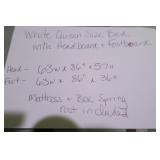 White Queen Size Bed
with Headboard + Footboard
Head - 63w x 86" x 57h
Foot - 63w x 86" x 36"
Mattress + Box Spring
not included